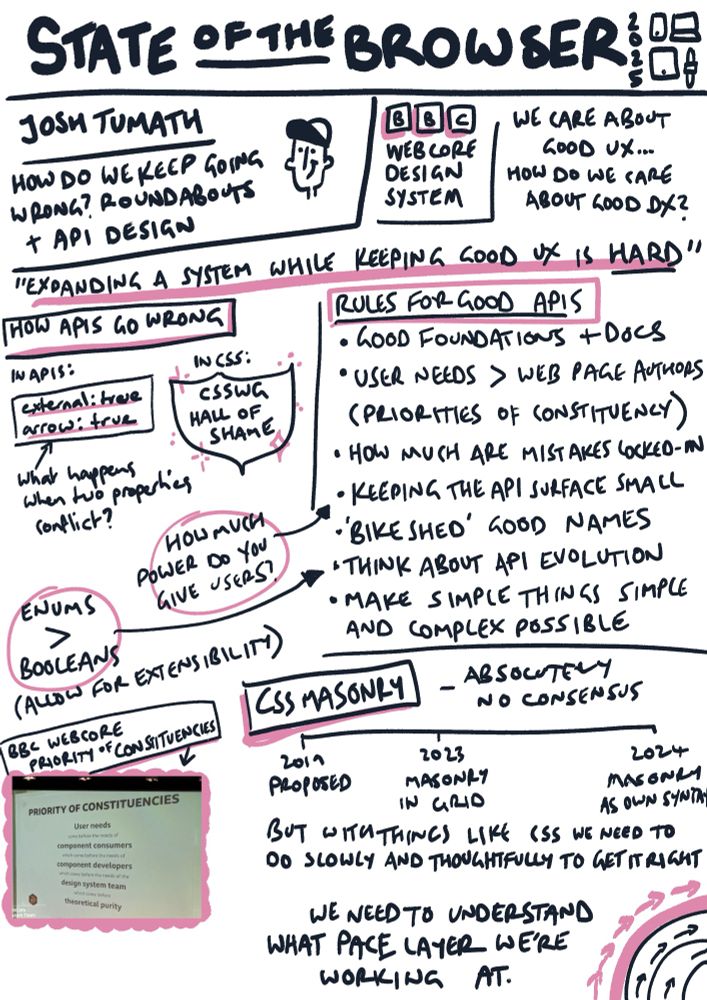 STATE OF THE BROWSER 2025
JOSH TUMATH
HOW DO WE KEEP GOING
WRONG? ROUNDABOUTS
+ API DESIGN
BBC
WEBCORE
DESIGN
SYSTEM
WE CARE ABOUT
GOOD UX...
HOW DO WE CARE
ABOUT GOOD DX?
"EXPANDING A SYSTEM WHILE KEEPING GOOD UX IS HARD"
HOW APIS GO WRONG
IN APIS:
external: true
arrow: true
What happens
when two properties
conflict?
IN CSS:
CSSWG
HALL OF
SHAME
HOW MUCH
POWER DO YOU
GIVE USERS?
ENUMS
>
BOOLEANS
(ALLOW FOR EXTENSIBILITY)
RULES FOR GOOD APIS
• GOOD FOUNDATIONS + DOCS
• USER NEEDS > WEB PAGE AUTHORS
(PRIORITIES OF CONSTITUENCY)
• HOW MUCH ARE MISTAKES LOCKED-IN
• KEEPING THE API SURFACE SMALL
• 'BIKE SHED' GOOD NAMES
• THINK ABOUT API EVOLUTION
• MAKE SIMPLE THINGS SIMPLE
AND COMPLEX POSSIBLE
BBC WEBCORE
PRIORITY OF CONSTITUENCIES
PRIORITY OF CONSTITUENCIES
User needs
come before the needs of
component consumers
which come before the needs of
component developers
which come before the needs of the
design system team
which comes before
theoretical purity
CSS MASONRY
- ABSOLUTELY
NO CONSENSUS
2019
PROPOSED
2023
MASONRY
IN GRID
2024
MASONRY
AS OWN SYNTA
BUT WITH THINGS LIKE CSS WE NEED TO
DO SLOWLY AND THOUGHTFULLY TO GET IT RIGHT
WE NEED TO UNDERSTAND
WHAT PACE LAYER WE'RE
WORKING AT.